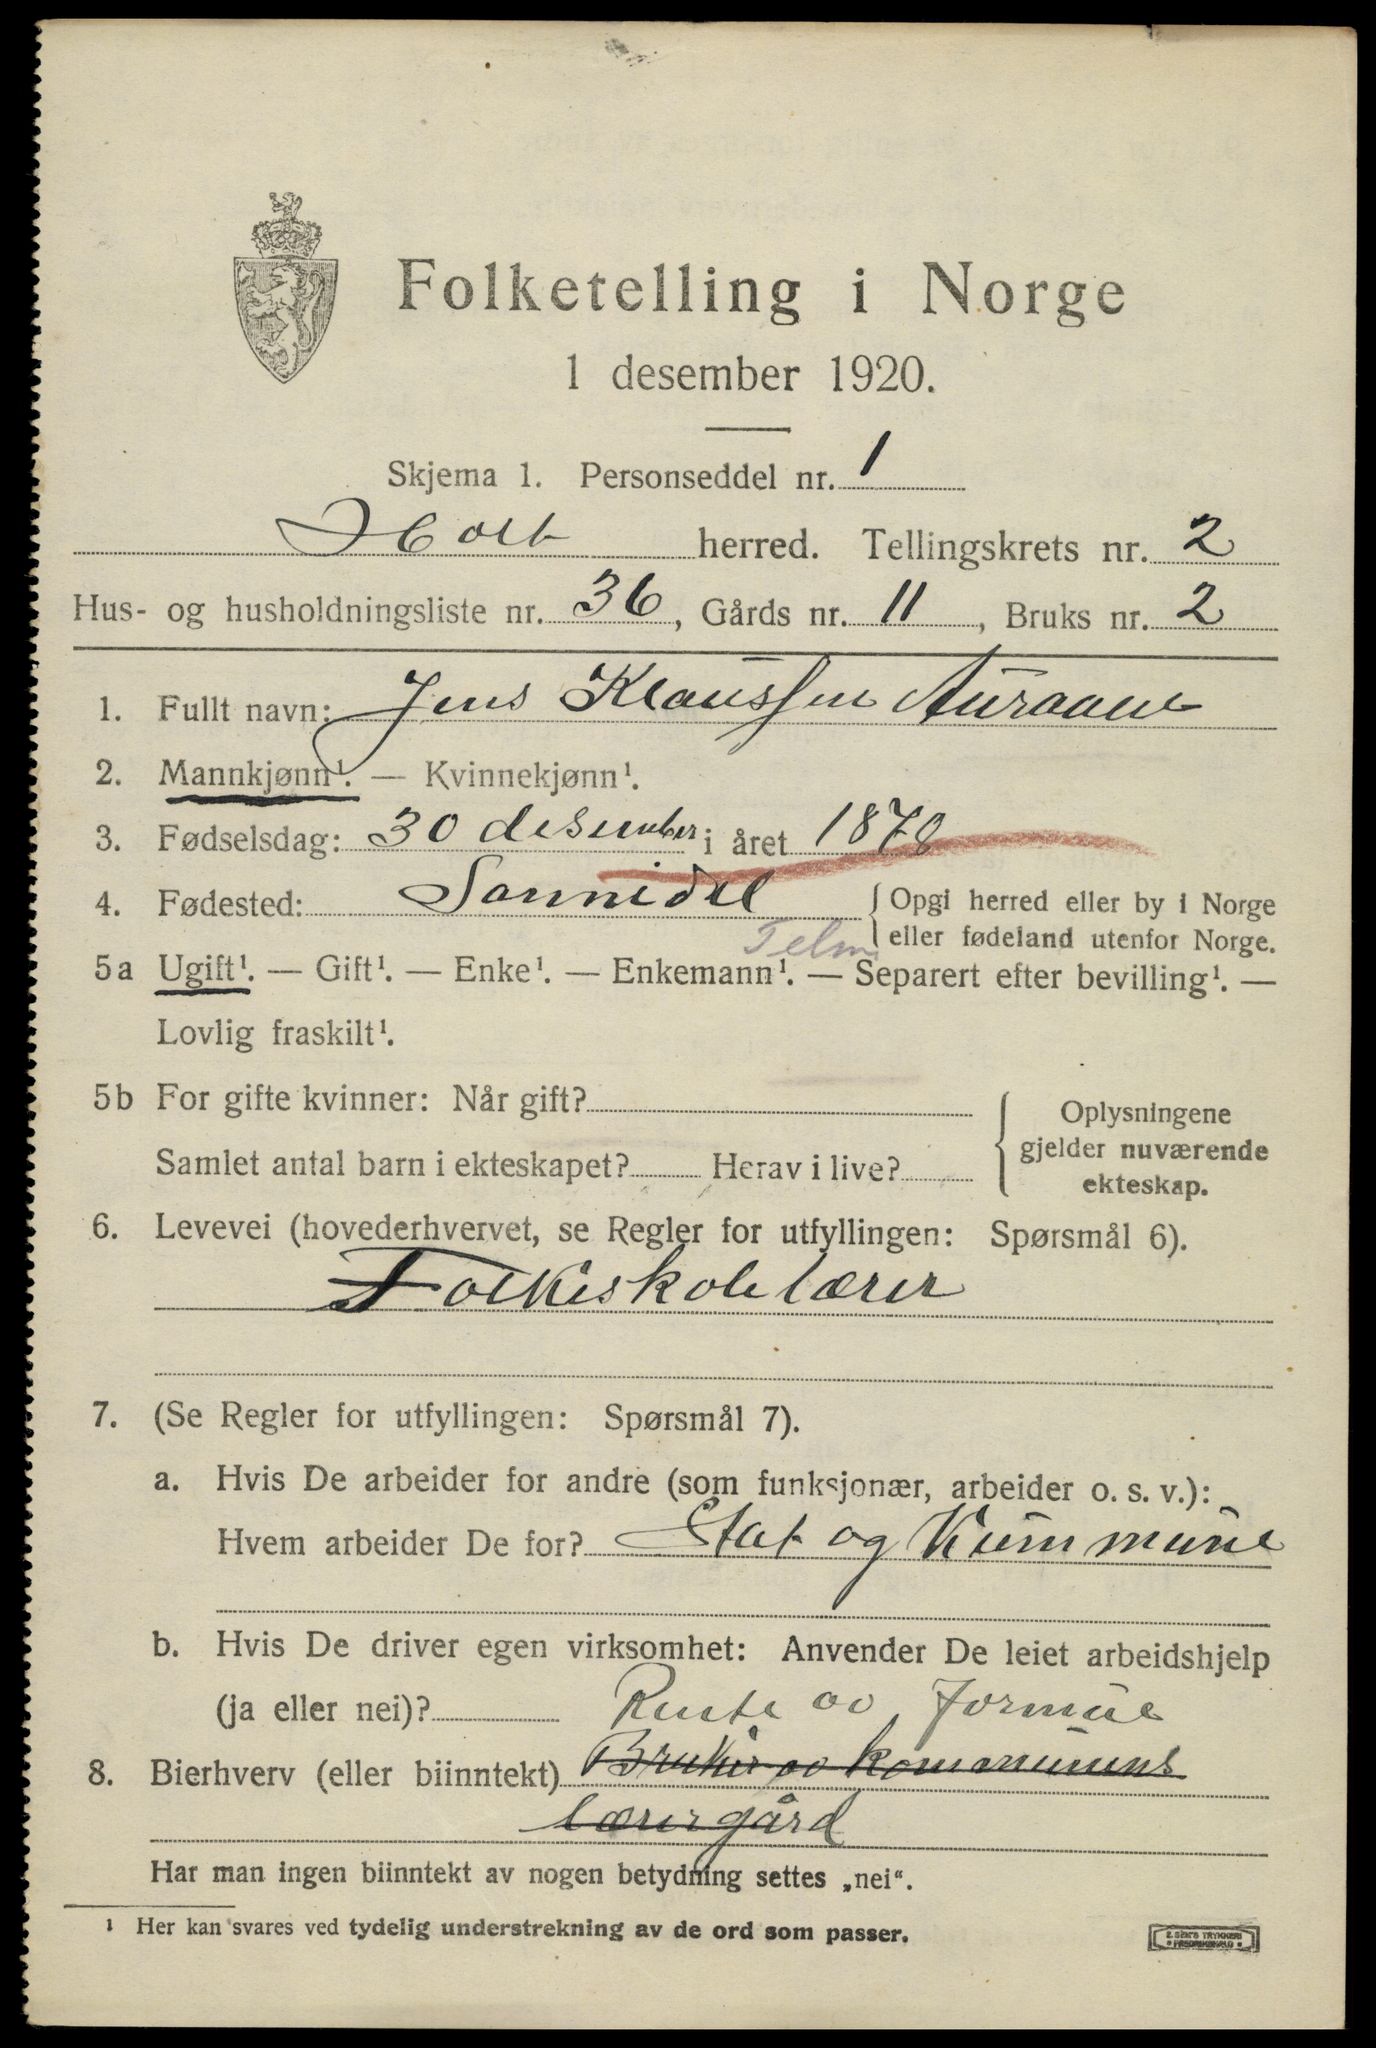 Folketelling i Norge
1 desember 1920.
Skjema 1. Personseddel nr. 1
Holt herred. Tellingskrets nr. 2
Hus- og husholdningsliste nr. 36, Gårds nr. 11, Bruks nr. 2
1. Fullt navn: Jens Klaussen Auraane
2. Mannkjønn¹. — Kvinnekjønn¹.
3. Fødselsdag: 30 desember i året 1878
4. Fødested: Sannidel { Opgi herred eller by i Norge
eller fødeland utenfor Norge.
Telm
5a Ugift¹. — Gift¹. — Enke¹. — Enkemann¹. — Separert efter bevilling¹. —
Lovlig fraskilt¹.
5b For gifte kvinner: Når gift? { Oplysningene
gjelder nuværende
ekteskap.
Samlet antal barn i ekteskapet? Herav i live?
6. Levevei (hovederhvervet, se Regler for utfyllingen: Spørsmål 6).
Folkeskolelærer
7. (Se Regler for utfyllingen: Spørsmål 7).
a. Hvis De arbeider for andre (som funksjonær, arbeider o. s. v.):
Hvem arbeider De for? Stat og Kummune
b. Hvis De driver egen virksomhet: Anvender De leiet arbeidshjelp
(ja eller nei)? Rente av Formue
8. Bierhverv (eller biinntekt) Bruker av kommunens
lærergård
Har man ingen biinntekt av nogen betydning settes „nei“.
¹ Her kan svares ved tydelig understrekning av de ord som passer.